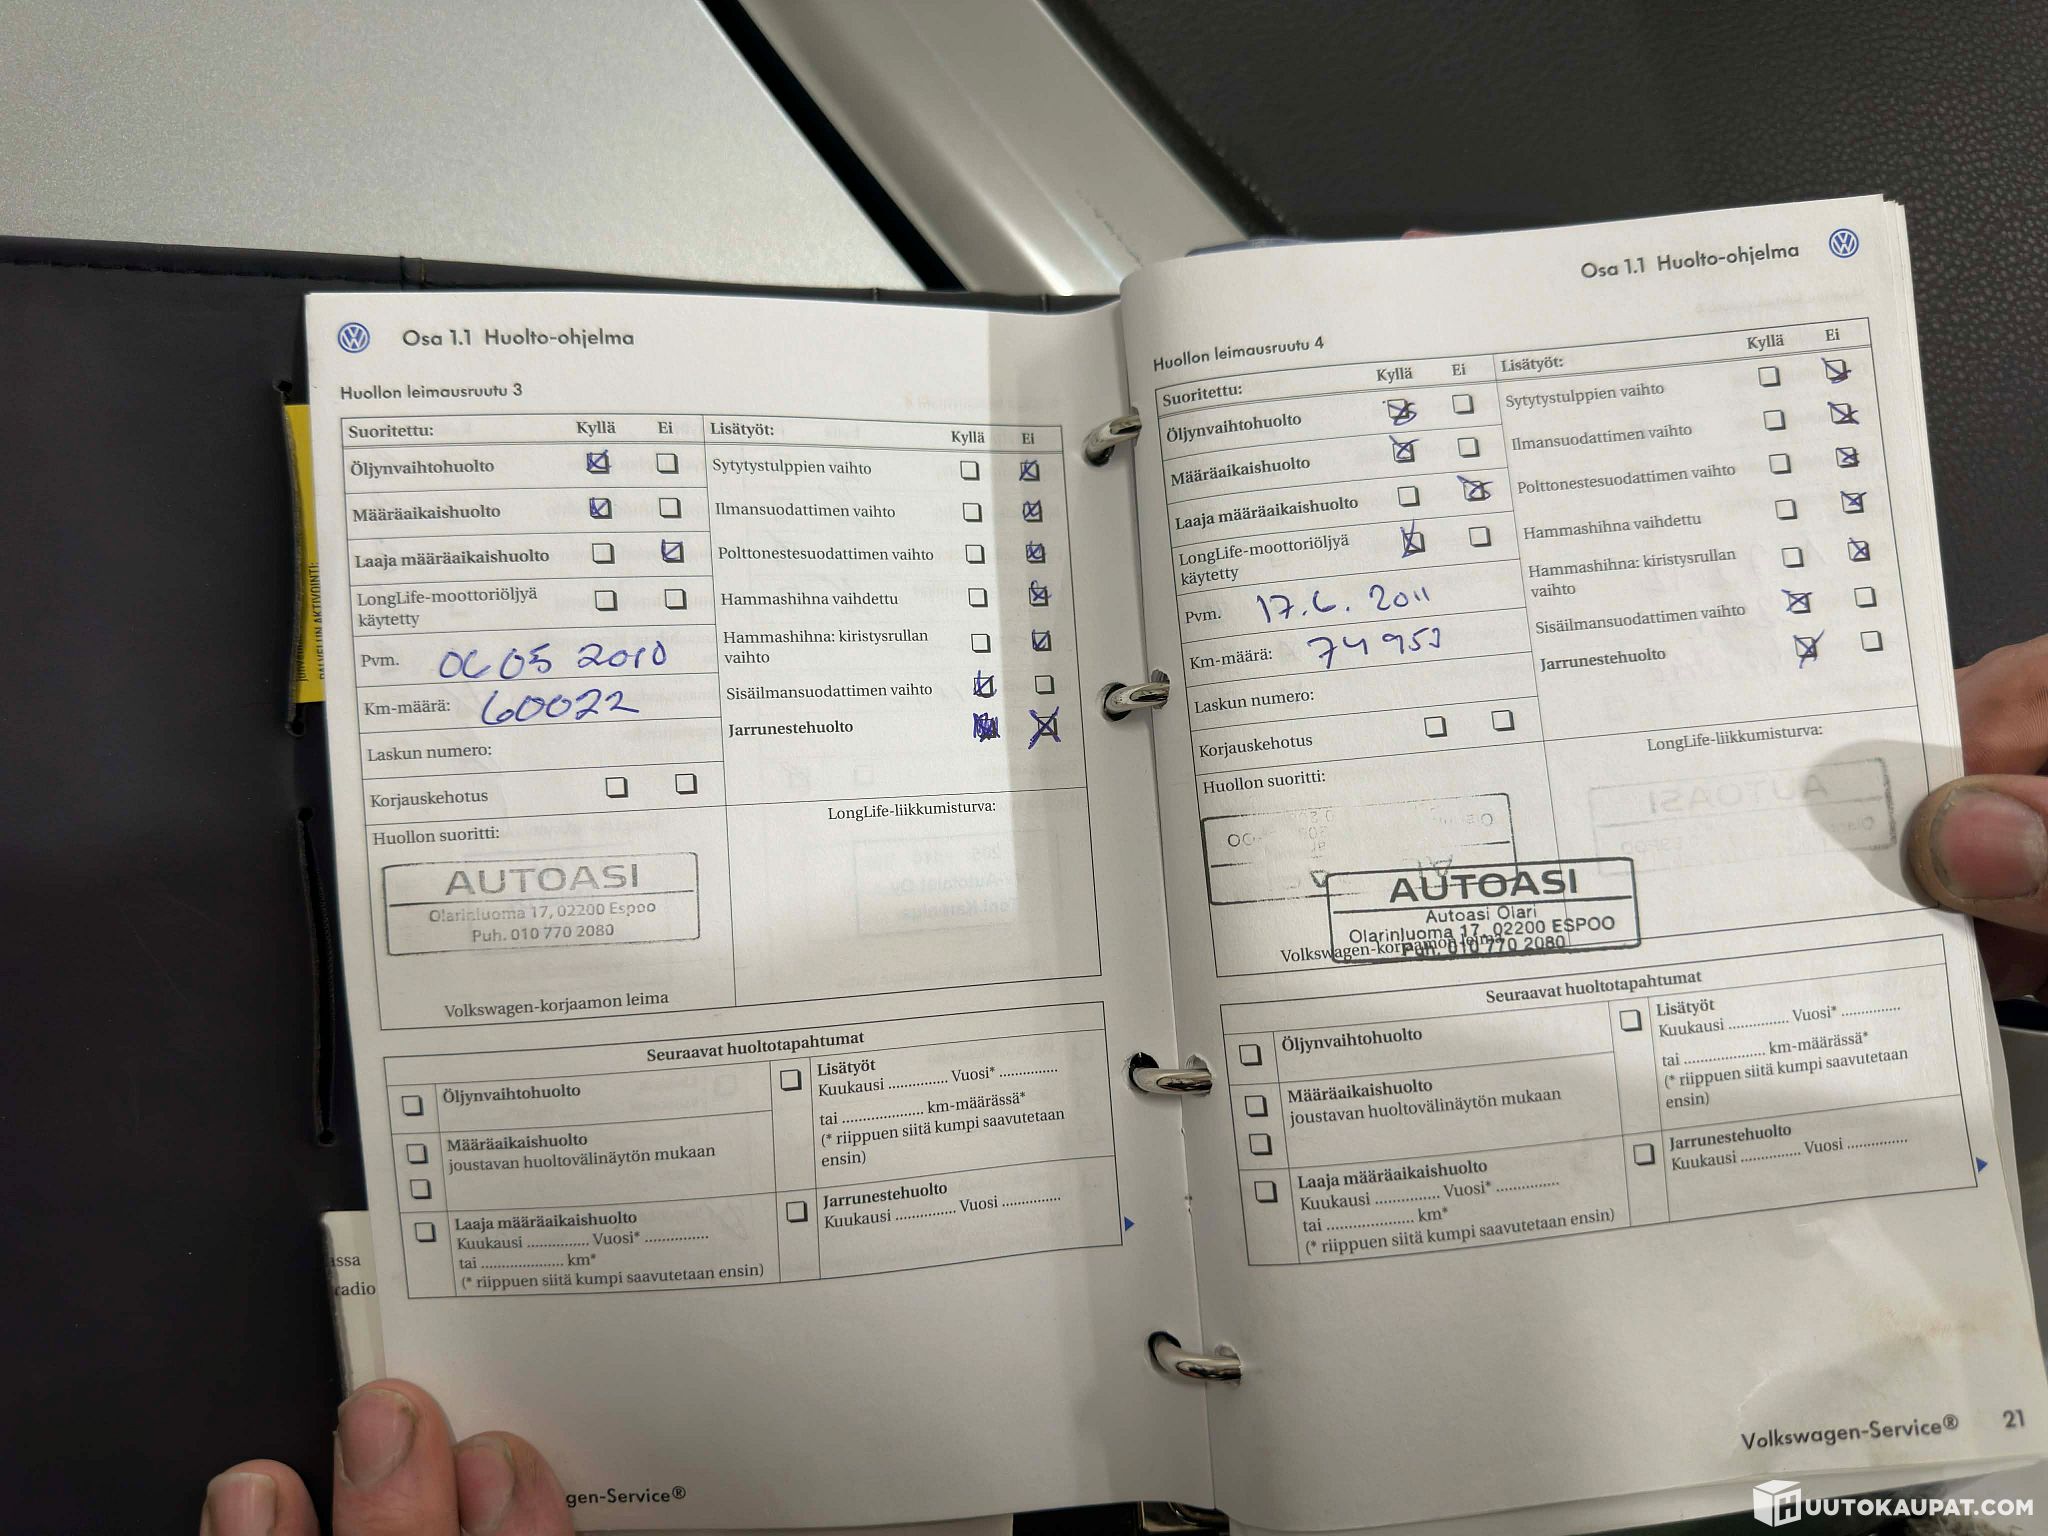 Osa 1.1 Huolto-ohjelma
Huollon leimausruutu 3
Suoritettu: Kyllä Ei Lisätyöt: Kyllä Ei
Öljynvaihtohuolto
Määräaikaishuolto
Laaja määräaikaishuolto
LongLife-moottoriöljyä
käytetty
Pvm. 06 05 2010
Km-määrä: 60022
Laskun numero:
Korjauskehotus
Sytytystulppien vaihto
Ilmansuodattimen vaihto
Polttonestesuodattimen vaihto
Hammashihna vaihdettu
Hammashihna: kiristysrullan
vaihto
Sisäilmansuodattimen vaihto
Jarrunestehuolto
Huollon suoritti:
LongLife-liikkumisturva:
AUTOASI
Olarinluoma 17, 02200 Espoo
Puh. 010 770 2080
Volkswagen-korjaamon leima
Seuraavat huoltotapahtumat
Öljynvaihtohuolto
Määräaikaishuolto
joustavan huoltovälinäytön mukaan
Laaja määräaikaishuolto
Kuukausi ............... Vuosi* ...............
tai .................... km*
(* riippuen siitä kumpi saavutetaan ensin)
Lisätyöt
Kuukausi .............. Vuosi* ..............
tai .................... km-määrässä*
(* riippuen siitä kumpi saavutetaan
ensin)
Jarrunestehuolto
Kuukausi .............. Vuosi ..............
gen-Service®
assa
radio
Osa 1.1 Huolto-ohjelma
Huollon leimausruutu 4
Suoritettu: Kyllä Ei Lisätyöt: Kyllä Ei
Öljynvaihtohuolto
Määräaikaishuolto
Laaja määräaikaishuolto
LongLife-moottoriöljyä
käytetty
Pvm. 17.6. 2011
Km-määrä: 74953
Laskun numero:
Korjauskehotus
Sytytystulppien vaihto
Ilmansuodattimen vaihto
Polttonestesuodattimen vaihto
Hammashihna vaihdettu
Hammashihna: kiristysrullan
vaihto
Sisäilmansuodattimen vaihto
Jarrunestehuolto
Huollon suoritti:
LongLife-liikkumisturva:
AUTOASI
Autoasi Olari
Olarinluoma 17, 02200 ESPOO
Puh. 010 770 2080
Volkswagen-korjaamon leima
Seuraavat huoltotapahtumat
Öljynvaihtohuolto
Määräaikaishuolto
joustavan huoltovälinäytön mukaan
Laaja määräaikaishuolto
Kuukausi ............... Vuosi* ...............
tai .................... km*
(* riippuen siitä kumpi saavutetaan ensin)
Lisätyöt
Kuukausi .............. Vuosi* ..............
tai .................... km-määrässä*
(* riippuen siitä kumpi saavutetaan
ensin)
Jarrunestehuolto
Kuukausi .............. Vuosi ..............
Volkswagen-Service® 21
HUUTOKAUPAT.COM